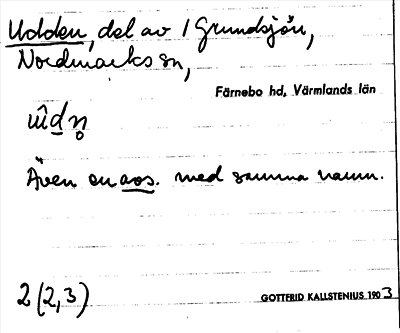 Udden, del av 1 Grundsjön,
Nordmarks sn,
Färnebo hd, Värmlands län
ûdn̥
Även en avs. med samma namn.
2 (2,3)
GOTTFRID KALLSTENIUS 1903